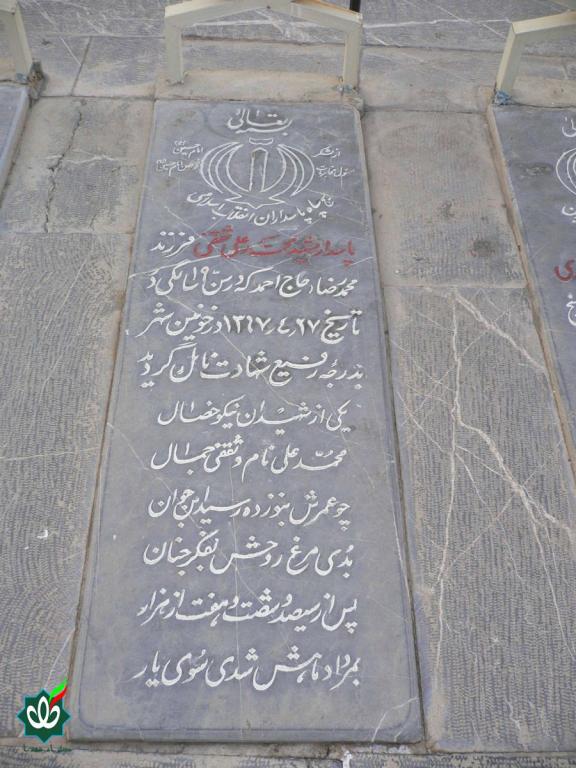 بسمه تعالی
سپاه پاسداران انقلاب اسلامی
پاسدار شهید محمد علی ثقفی فرزند
محمدرضا، حاج احمد که در سن ۱۹ سالگی در
تاریخ ۱۳۶۷٫۴٫۲۷ در خونین شهر
بدرجه رفیع شهادت نائل گردید
یکی از شهیدان نیکو خصال
محمد علی نام و ثقفی جمال
چو عمرش بنوزده رسید این جوان
بدی مرغ روحش بفکر جنان
پس از سیصد و شصت و هفت از هزار
بمرداد ماهش شدی سوی یار